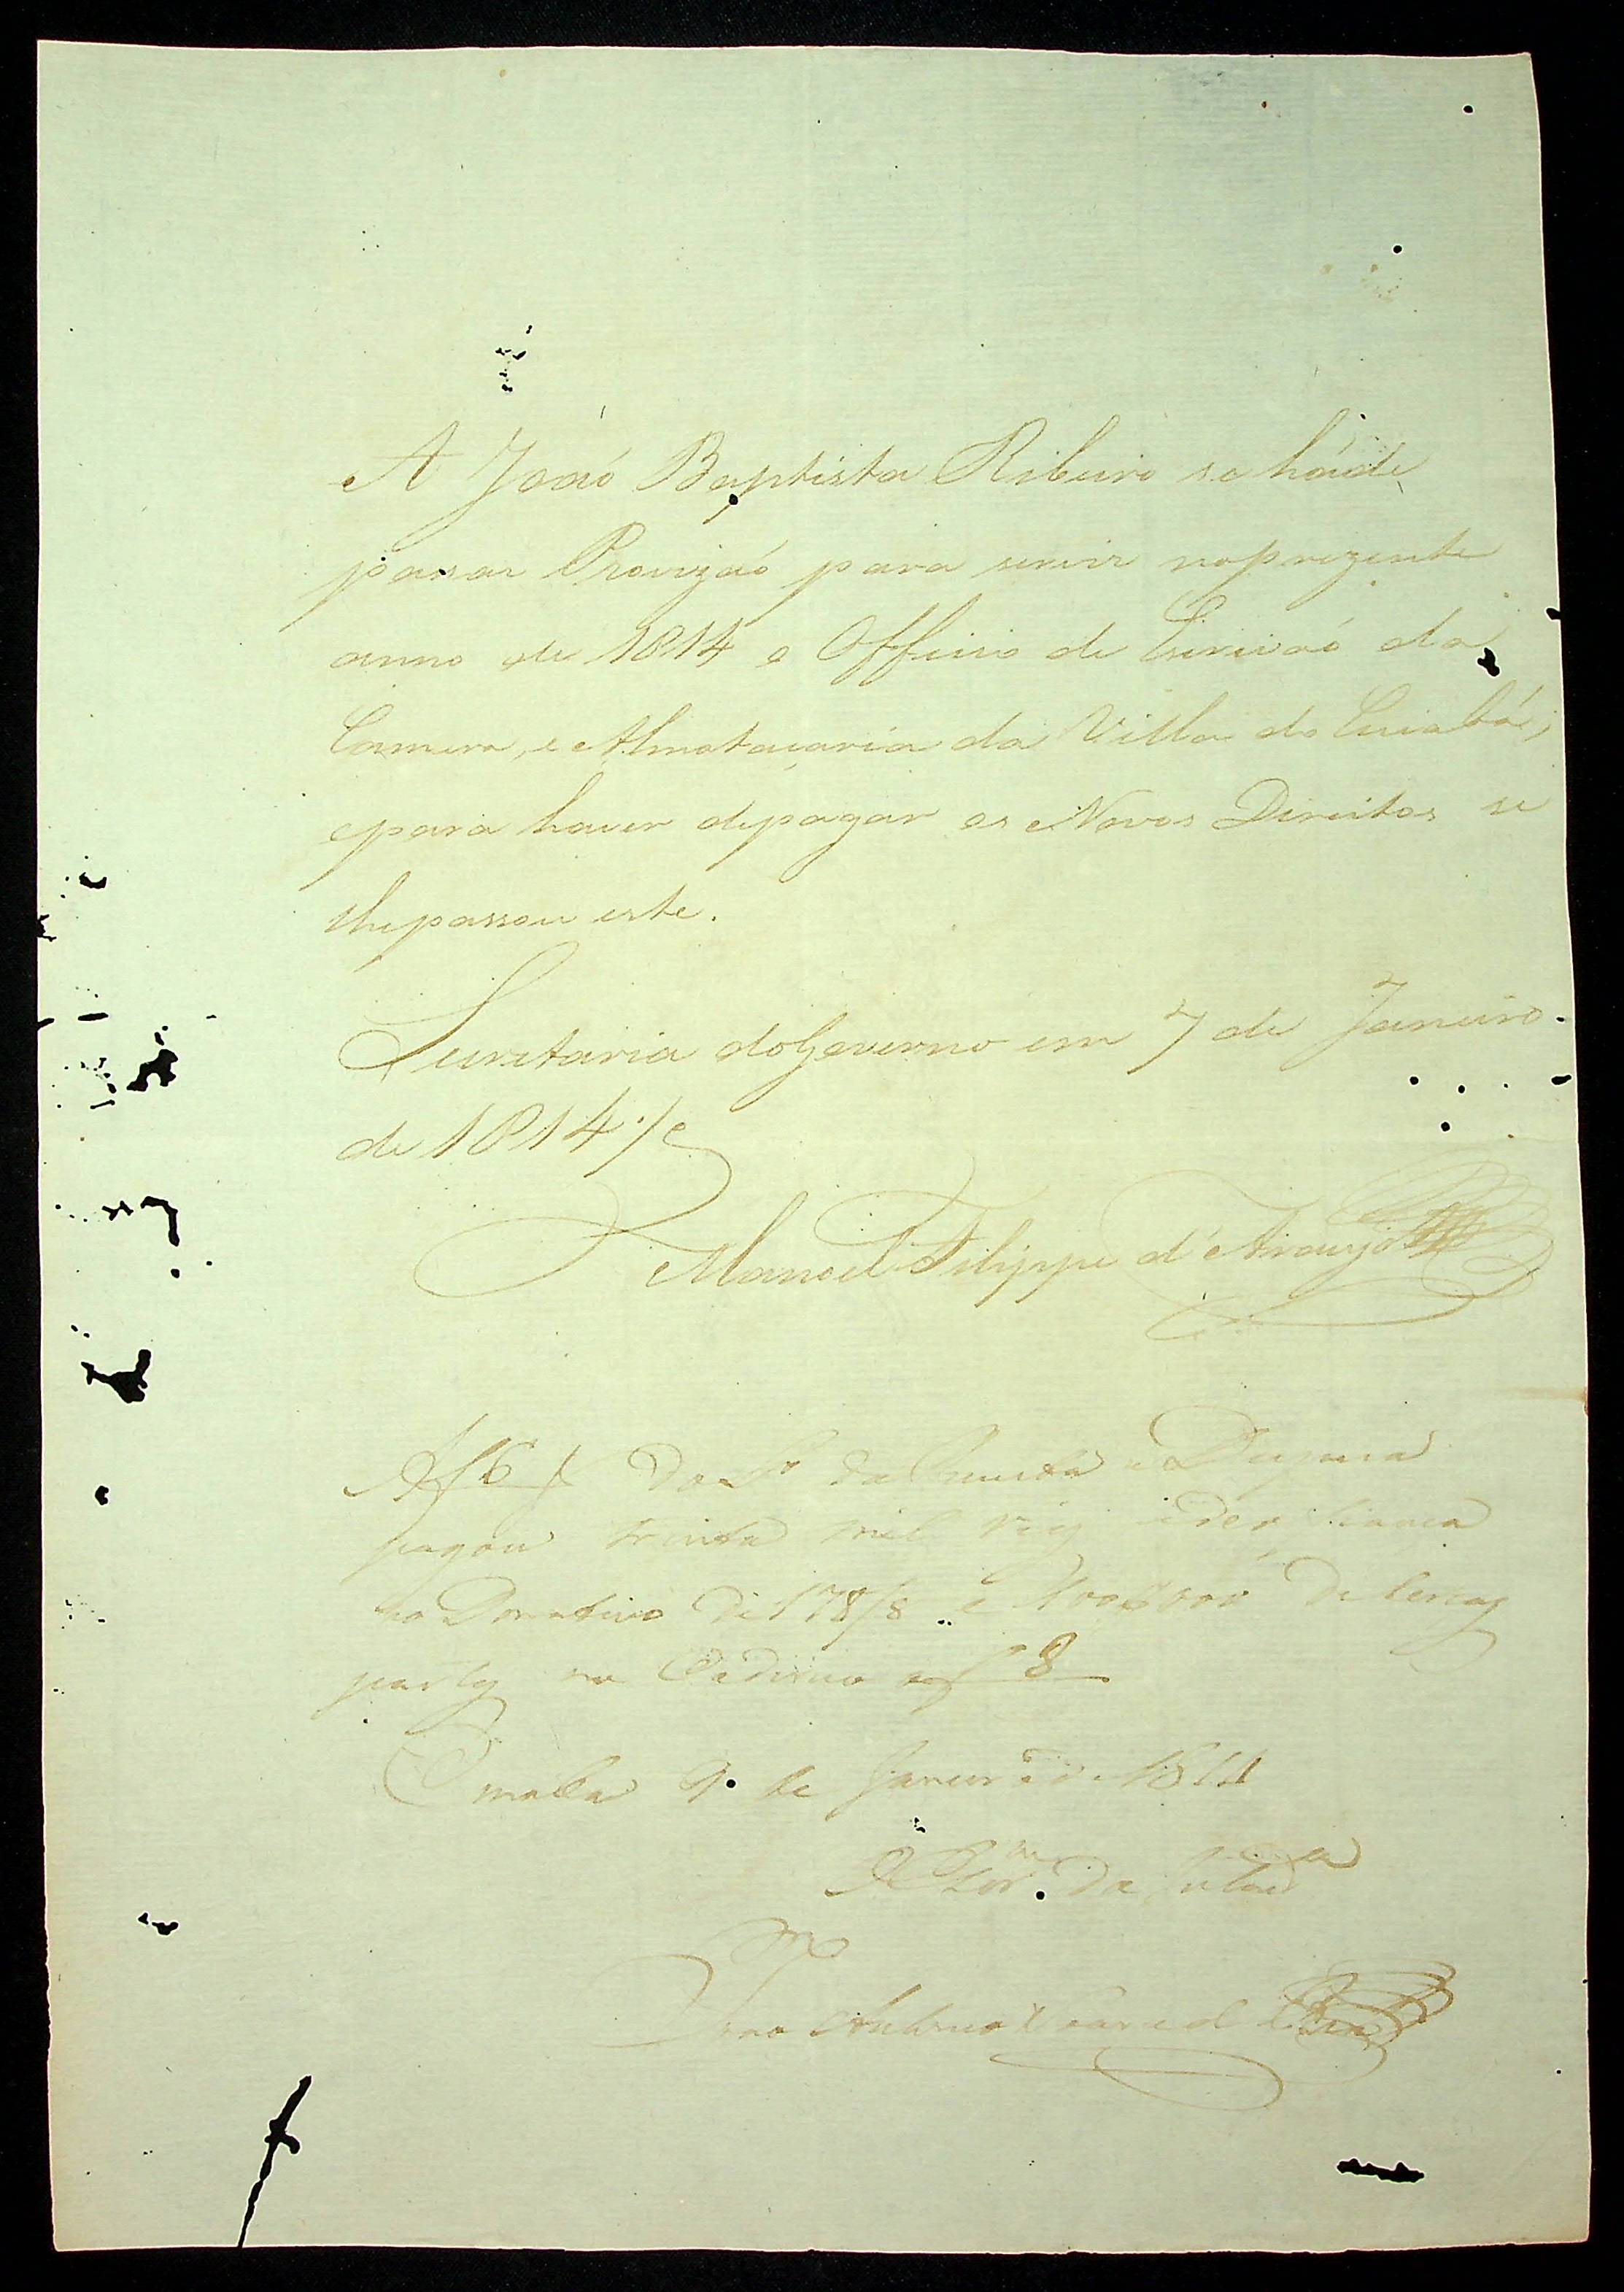 A João Baptista Ribeiro se háde
passar Provizaó para servir noprezente
anno de 1814 o Officio de Escrivaó da
Camera, e Almotaçaria da Villa do Cuiabá;
epara haver depagar os Novos Direitos se
lhepassou este.
Secretaria doGoverno em 7 de Janeiro
de 1814
Manoel Filippe d'Araujo
Af 6 da Receita e Despeza
pagou trinta mil e dez
no Donativo de e de terças
partes no a f 8
9 de Janeiro de 1814
O da
Antonio